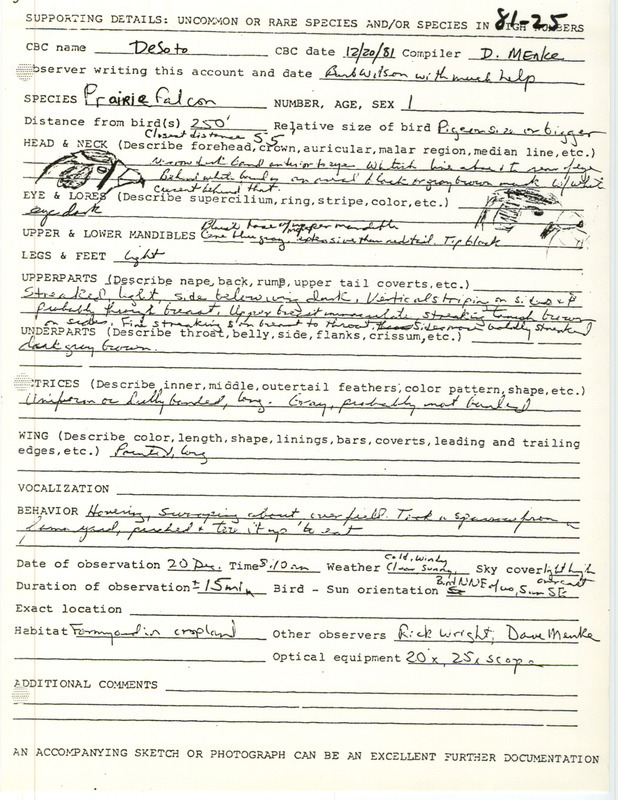 81-25
SUPPORTING DETAILS: UNCOMMON OR RARE SPECIES AND/OR SPECIES IN HIGH NUMBERS
CBC name DeSoto CBC date 12/20/81 Compiler D. Menke
Observer writing this account and date Burt Wilson with much help
SPECIES Prairie Falcon NUMBER, AGE, SEX 1
Distance from bird(s) 250' Relative size of bird Pigeon size or bigger
Closest distance
HEAD & NECK (Describe forehead, crown, auricular, malar region, median line, etc.)
narrow dark band anterior to eye. Whitish line above & rear of eye
Behind white band is an oval black or gray brown mark w/ white
current behind that.
EYE & LORES (Describe supercilium, ring, stripe, color, etc.)
eye dark
UPPER & LOWER MANDIBLES Bluish base of upper mandible
Tip black
LEGS & FEET light
UPPERPARTS (Describe nape, back, rump, upper tail coverts, etc.)
Streaked, light, side below wing dark, Vertical striping on sides &
probably through breast. Upper breast immaculate streaking through brown
on sides. Fine streaking from breast to throat. Sides more boldly streaked
UNDERPARTS (Describe throat, belly, side, flanks, crissum, etc.)
dark gray brown
RECTRICES (Describe inner, middle, outertail feathers, color pattern, shape, etc.)
Uniform or dully banded, long. Gray, probably not banded
WING (Describe color, length, shape, linings, bars, coverts, leading and trailing
edges, etc.) Pointed, long
VOCALIZATION
BEHAVIOR Hovering, swooping about over field. Took a sparrow from a
farmyard, perched & tore it up to eat
Date of observation 20 Dec. Time 8:10am Weather Cold, windy Clear sunny. Sky cover light high overcast
Duration of observation ± 15 min Bird - Sun orientation Bird NNE of us, Sun SE
Exact location
Habitat Farmyard in cropland Other observers Rick Wright, Dave Menke
Optical equipment 20x, 25x scope
ADDITIONAL COMMENTS
AN ACCOMPANYING SKETCH OR PHOTOGRAPH CAN BE AN EXCELLENT FURTHER DOCUMENTATION